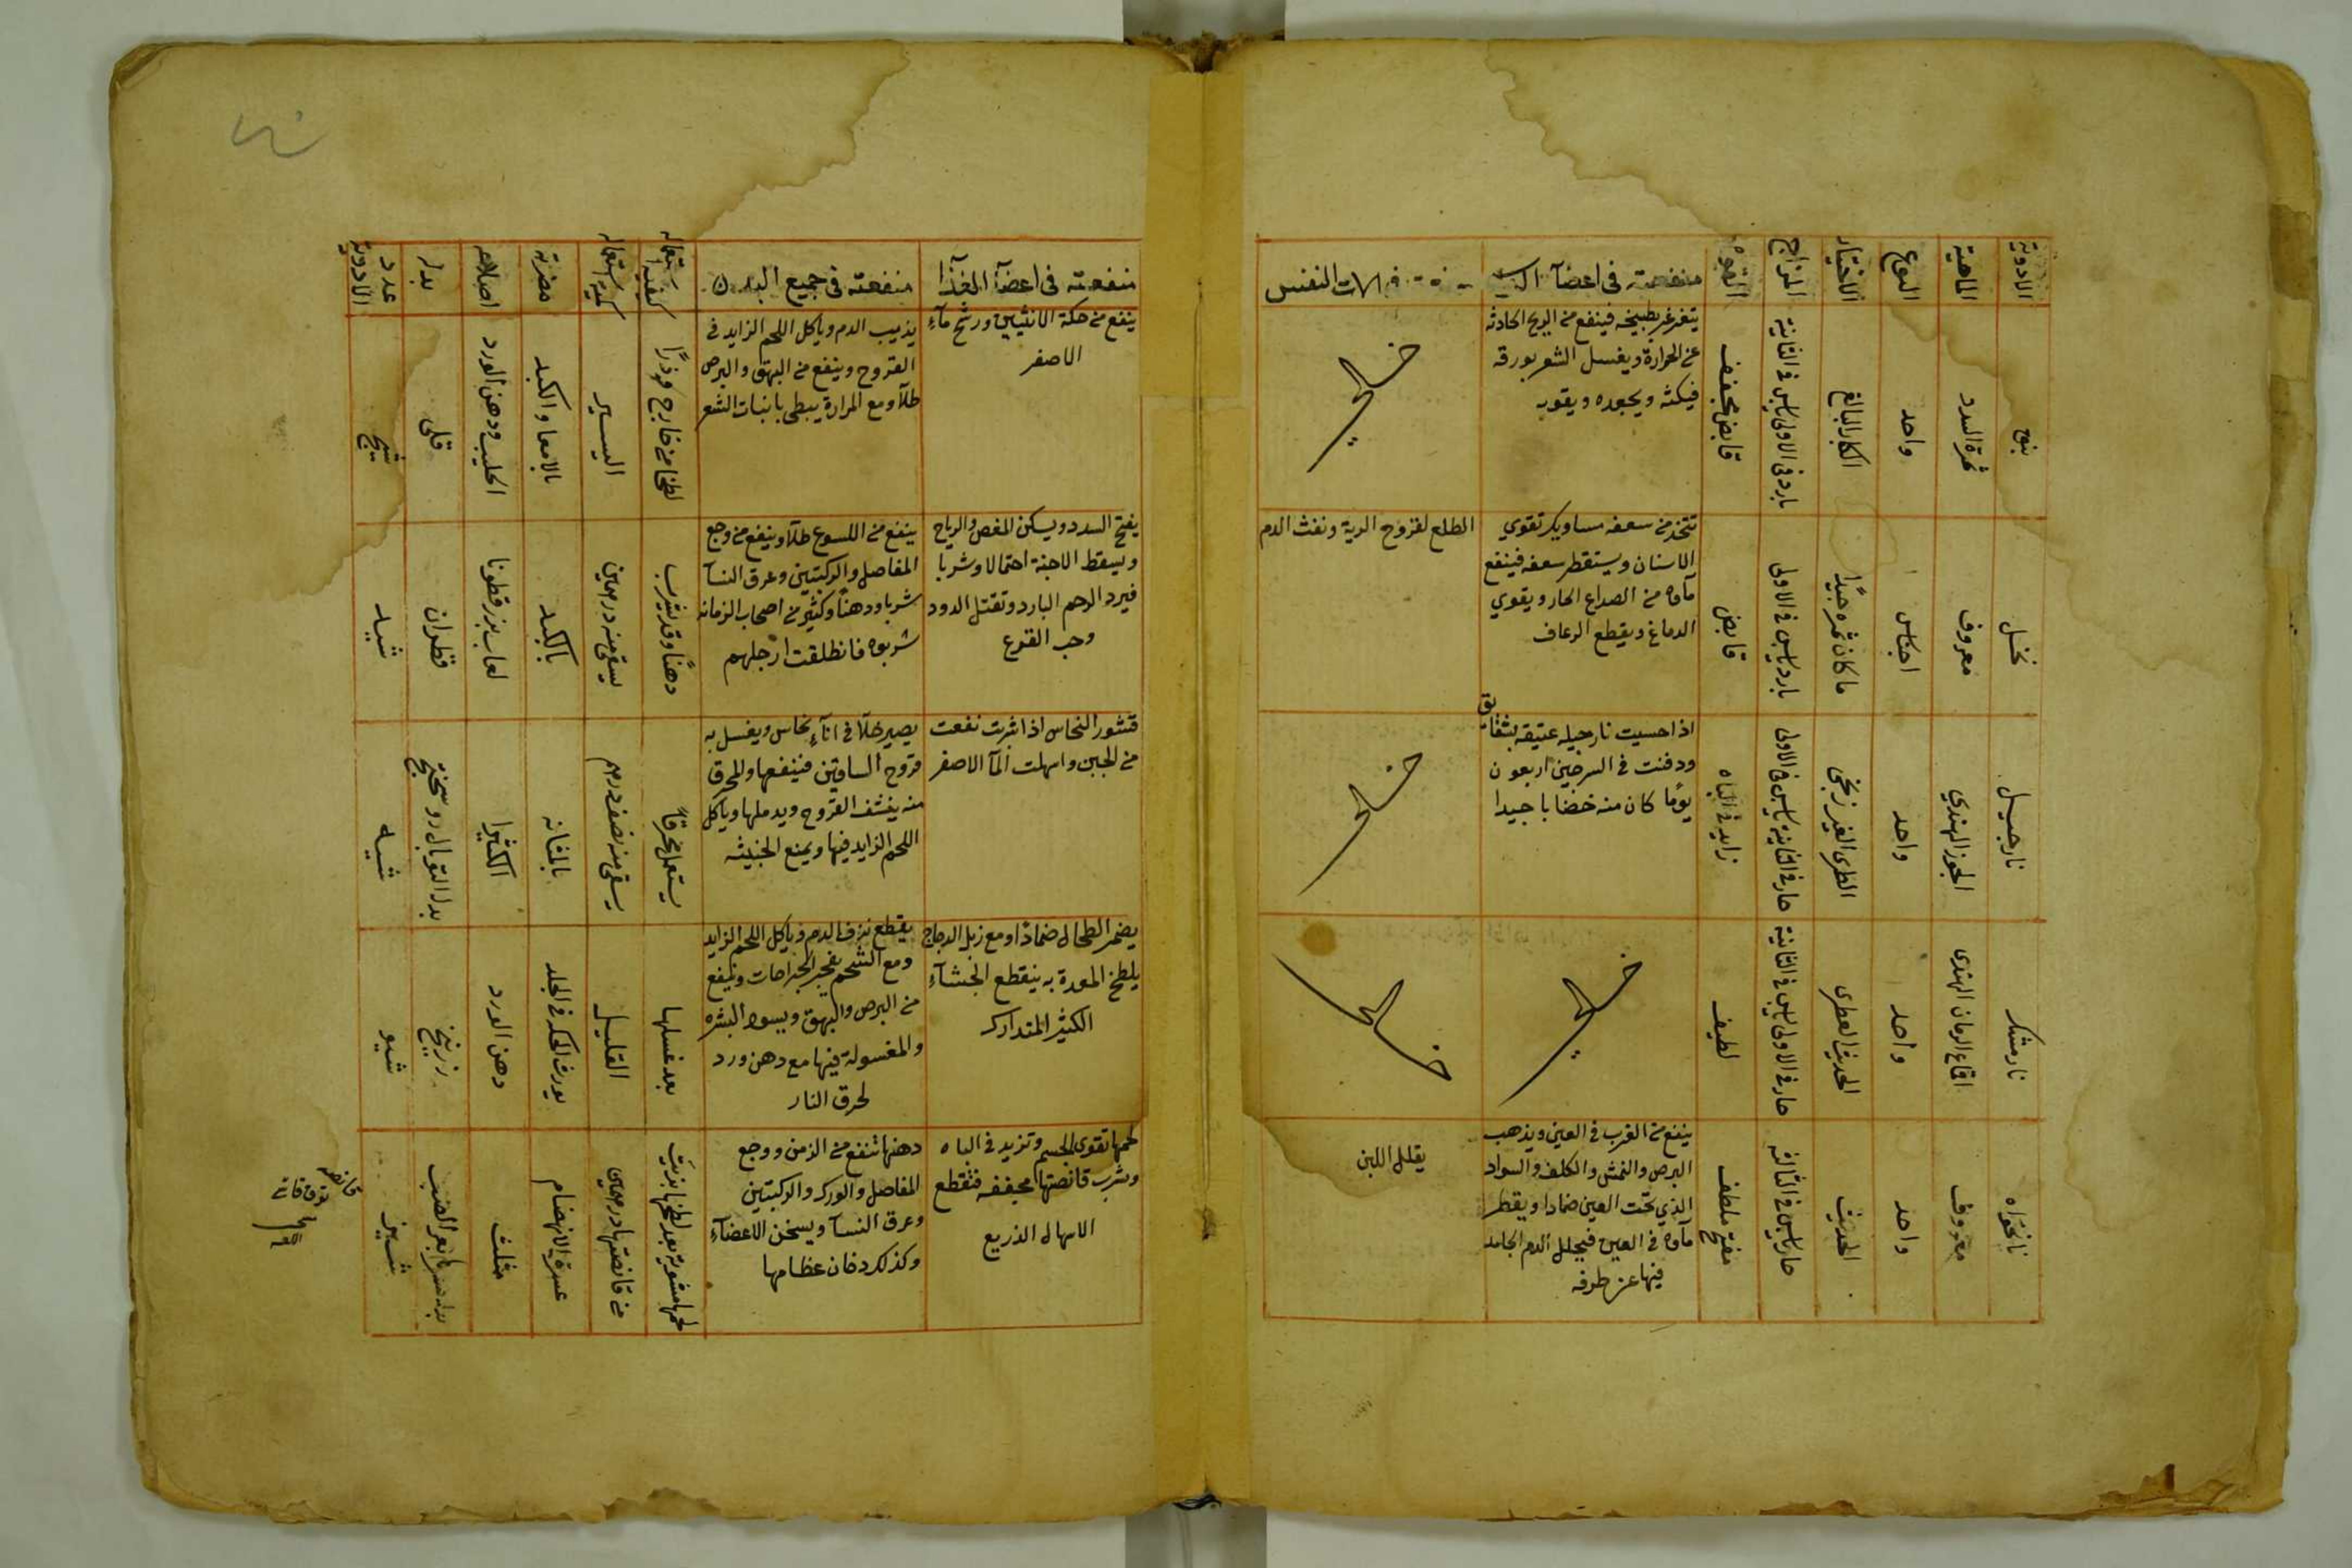 الادوية
الماهية
النوع
الاختيار
المزاج
القوة
منفعته في اعضآ الراس
الات النفس
نبق
ثمرة السدر
واحد
الكبار البالغ
بارد في الاولى يابس في الثانية
قابض مجفف
يتغرغر بطبيخه فينفع من الريح الحادثه
عن الحرارة ويغسل الشعر بورقه
فيكثه ويجعده ويقويه
خالي
نخل
معروف
اجناس
ما كان ثمره جيدا
بارد يابس في الاولى
قابض
تتخذ من سعفه مساويك تقوي
الاسنان ويستقطر سعفه فينفع
مآوه من الصداع الحار ويقوي
الدماغ ويقطع الرعاف
الطلع لقروح الرية ونفث الدم
نارجيل
الجوز الهندي
واحد
الطرى الغير زنخ
حار في الثانية يابس في الاولى
زايد في الباه
اذا حسيت نارجيله عتيقه بشقايق
ودفنت في السرجين اربعون
يومًا كان منه خضابا جيدا
خالي
نارمشك
اقماع الرمان الهندى
واحد
الحديث العطرى
حار في الاولى يابس في الثانية
لطيف
خالي
خالي
نانخواه
معروف
واحد
الحديث
حار يابس في الثالثة
مفتح ملطف
ينفع من الغرب في العين ويذهب
البرص والنمش والكلف والسواد
الذي تحت العين ضمادا ويقطر
مآوه في العين فيحلل الدم الجامد
فيها عن طرفه
يقلل اللبن
منفعته في اعضآ الغذآ
منفعته في جميع البدن
كيفية استعماله
كمية استعماله
مضرته
اصلاحه
بدله
عدد الادوية
ينفع من حكة الانثيين ورشح مآء
الاصفر
يذيب الدم ويأكل اللحم الزايد في
القروح وينفع من البهق والبرص
طلآ ومع المرارة يبطى بانبات الشعر
لطخا من خارج وذرًا
اليسير
بالامعا والكبد
الحليب ودهن الورد
قلى
شيج
يفتح السدد ويسكن المغص والرياح
ويسقط الاجنة احتمالا وشربا
فيرد الرحم البارد وتقتل الدود
وحب القرع
ينفع من اللسوع طلآ وينفع من وجع
المفاصل والركبتين وعرق النسآ
شربا ودهنًا وكثير من اصحاب الزمانه
شربوه فانطلقت ارجلهم
دهنًا وقد يشرب
يسقى منه درهمين
بالكبد
لعاب بزر قطونا
قطران
شيد
قشور النحاس اذا شربت نفعت
من الجبن واسهلت المآ الاصفر
يصير خلآ في انآء نحاس ويغسل به
قروح الساقين فينفعها والمحرق
منه ينشف القروح ويدملها وياكل
اللحم الزايد فيها ويمنع الخبيثه
يستعمل محرقًا
يسقى منه نصف درهم
بالمثانه
الكثيرا
بدل التوبال روسختج
شيه
يضمر الطحال ضمادًا ومع زبل الدجاج
يلطخ المعدة به ينقطع الجشآء
الكثير المتدارك
يقطع نزف الدم وياكل اللحم الزايد
ومع الشحم يفجر الجراحات وينفع
من البرص والبهق ويسود البشره
والمغسولة فيها مع دهن ورد
لحرق النار
بعد غسلها
القليل
يورث الحكه في الجلد
دهن الورد
زرنيخ
شيو
لحمها تقوى الجسم وتزيد في الباه
وشرب قانصتها مجففه فتقطع
الاسهال الذريع
دهنها تنفع من الزمن ووجع
المفاصل والورك والركبتين
وعرق النسآ ويسخن الاعضآء
وكذلك دخان عظامها
لحمها مشوية بعد لطخها بزيت
من قانصتها درهمين
عسرة الانهضام
مثلث
شيز
قانصه